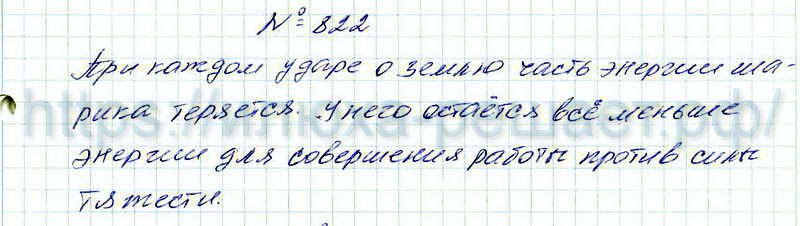 № 822
При каждом ударе о землю часть энергии ша-
рика теряется. У него остаётся всё меньше
энергии для совершения работы против силы
тяжести.